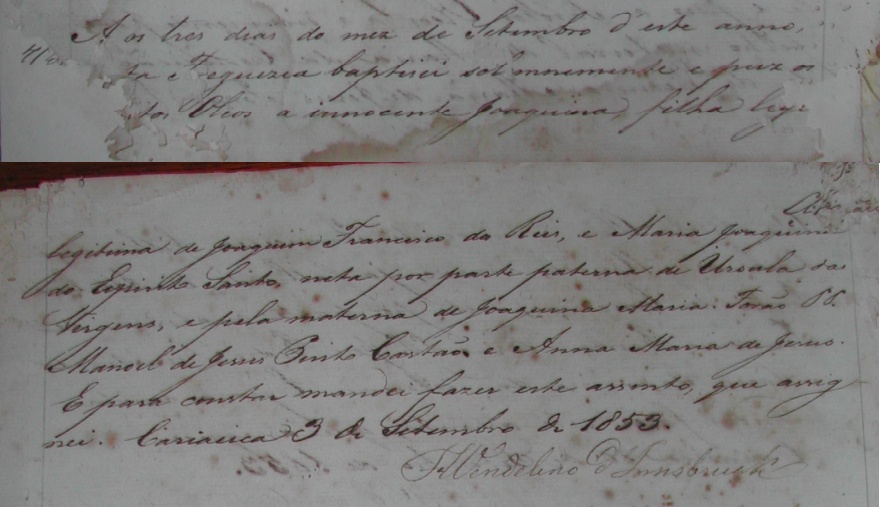 Aos tres dias do mez de Setembro d'este anno,
ta Freguezia baptisei solemnemente e puz os
tos Oleos a innocente Joaquina, filha legi
legitima de Joaquim Francisco da Reis, e Maria Joaquina
do Espirito Santo, neta por parte paterna de Ursula das
Virgens, e pela materna de Joaquina Maria: Forão PP.
Manoel de Jesus Pinto Castão e Anna Maria de Jesus.
E para constar mandei fazer este assento, que assig
nei. Cariacica 3 de Setembro de 1853.
Fr Wendelino d'Innsbruck